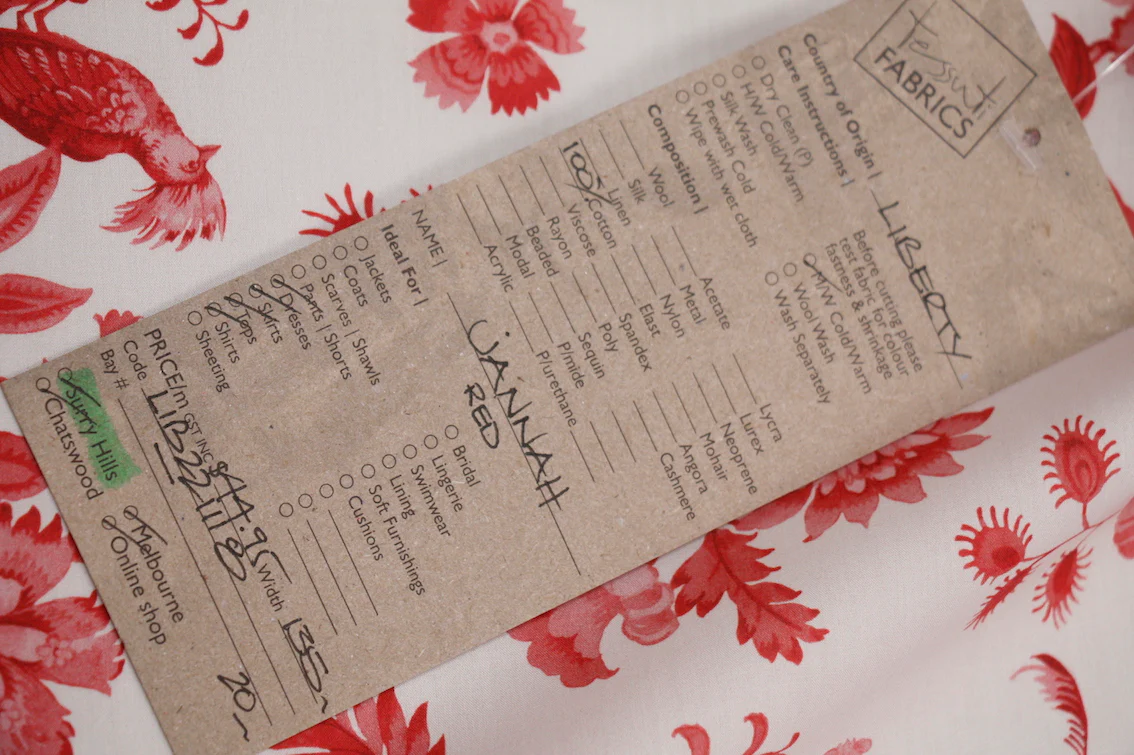 Tessuti
FABRICS
Country of Origin | LIBERTY
Care Instructions |
Dry Clean (P)
H/W Cold/Warm
Silk Wash
Prewash Cold
Wipe with wet cloth
Before cutting please
test fabric for colour
fastness & shrinkage
M/W Cold/Warm
Wool Wash
Wash Separately
Composition |
Wool
Silk
Linen
100% Cotton
Viscose
Rayon
Beaded
Modal
Acrylic
Acetate
Metal
Nylon
Elast
Spandex
Poly
Sequin
P/mide
P/urethane
Lycra
Lurex
Neoprene
Mohair
Angora
Cashmere
NAME | JANNAH
RED
Ideal For |
Jackets
Coats
Scarves | Shawls
Pants | Shorts
Dresses
Skirts
Tops
Shirts
Sheeting
Bridal
Lingerie
Swimwear
Lining
Soft Furnishings
Cushions
PRICE/m GST INC $44.95 Width 135~
Code LIB221118
Bay # 20~
Surry Hills
Chatswood
Melbourne
Online shop